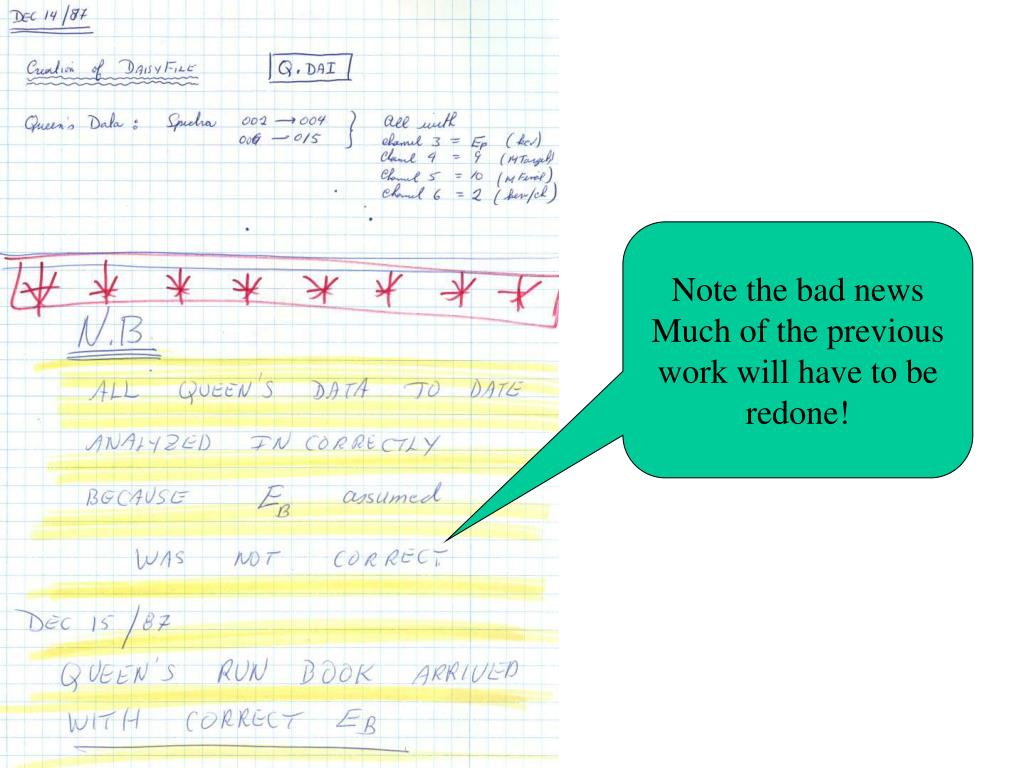 DEC 14/87
Creation of DAISYFILE Q.DAI
Queen's Data : Spectra 002 → 004 } All with
006 — 015 channel 3 = Ep (kev)
Channel 4 = 9 (MTarget)
Channel 5 = 10 (MFinal)
Channel 6 = 2 (kev/ch)
N.B.
ALL QUEEN'S DATA TO DATE
ANALYZED INCORRECTLY
BECAUSE EB assumed
WAS NOT CORRECT.
DEC 15/87
QUEEN'S RUN BOOK ARRIVED
WITH CORRECT EB
Note the bad news
Much of the previous
work will have to be
redone!